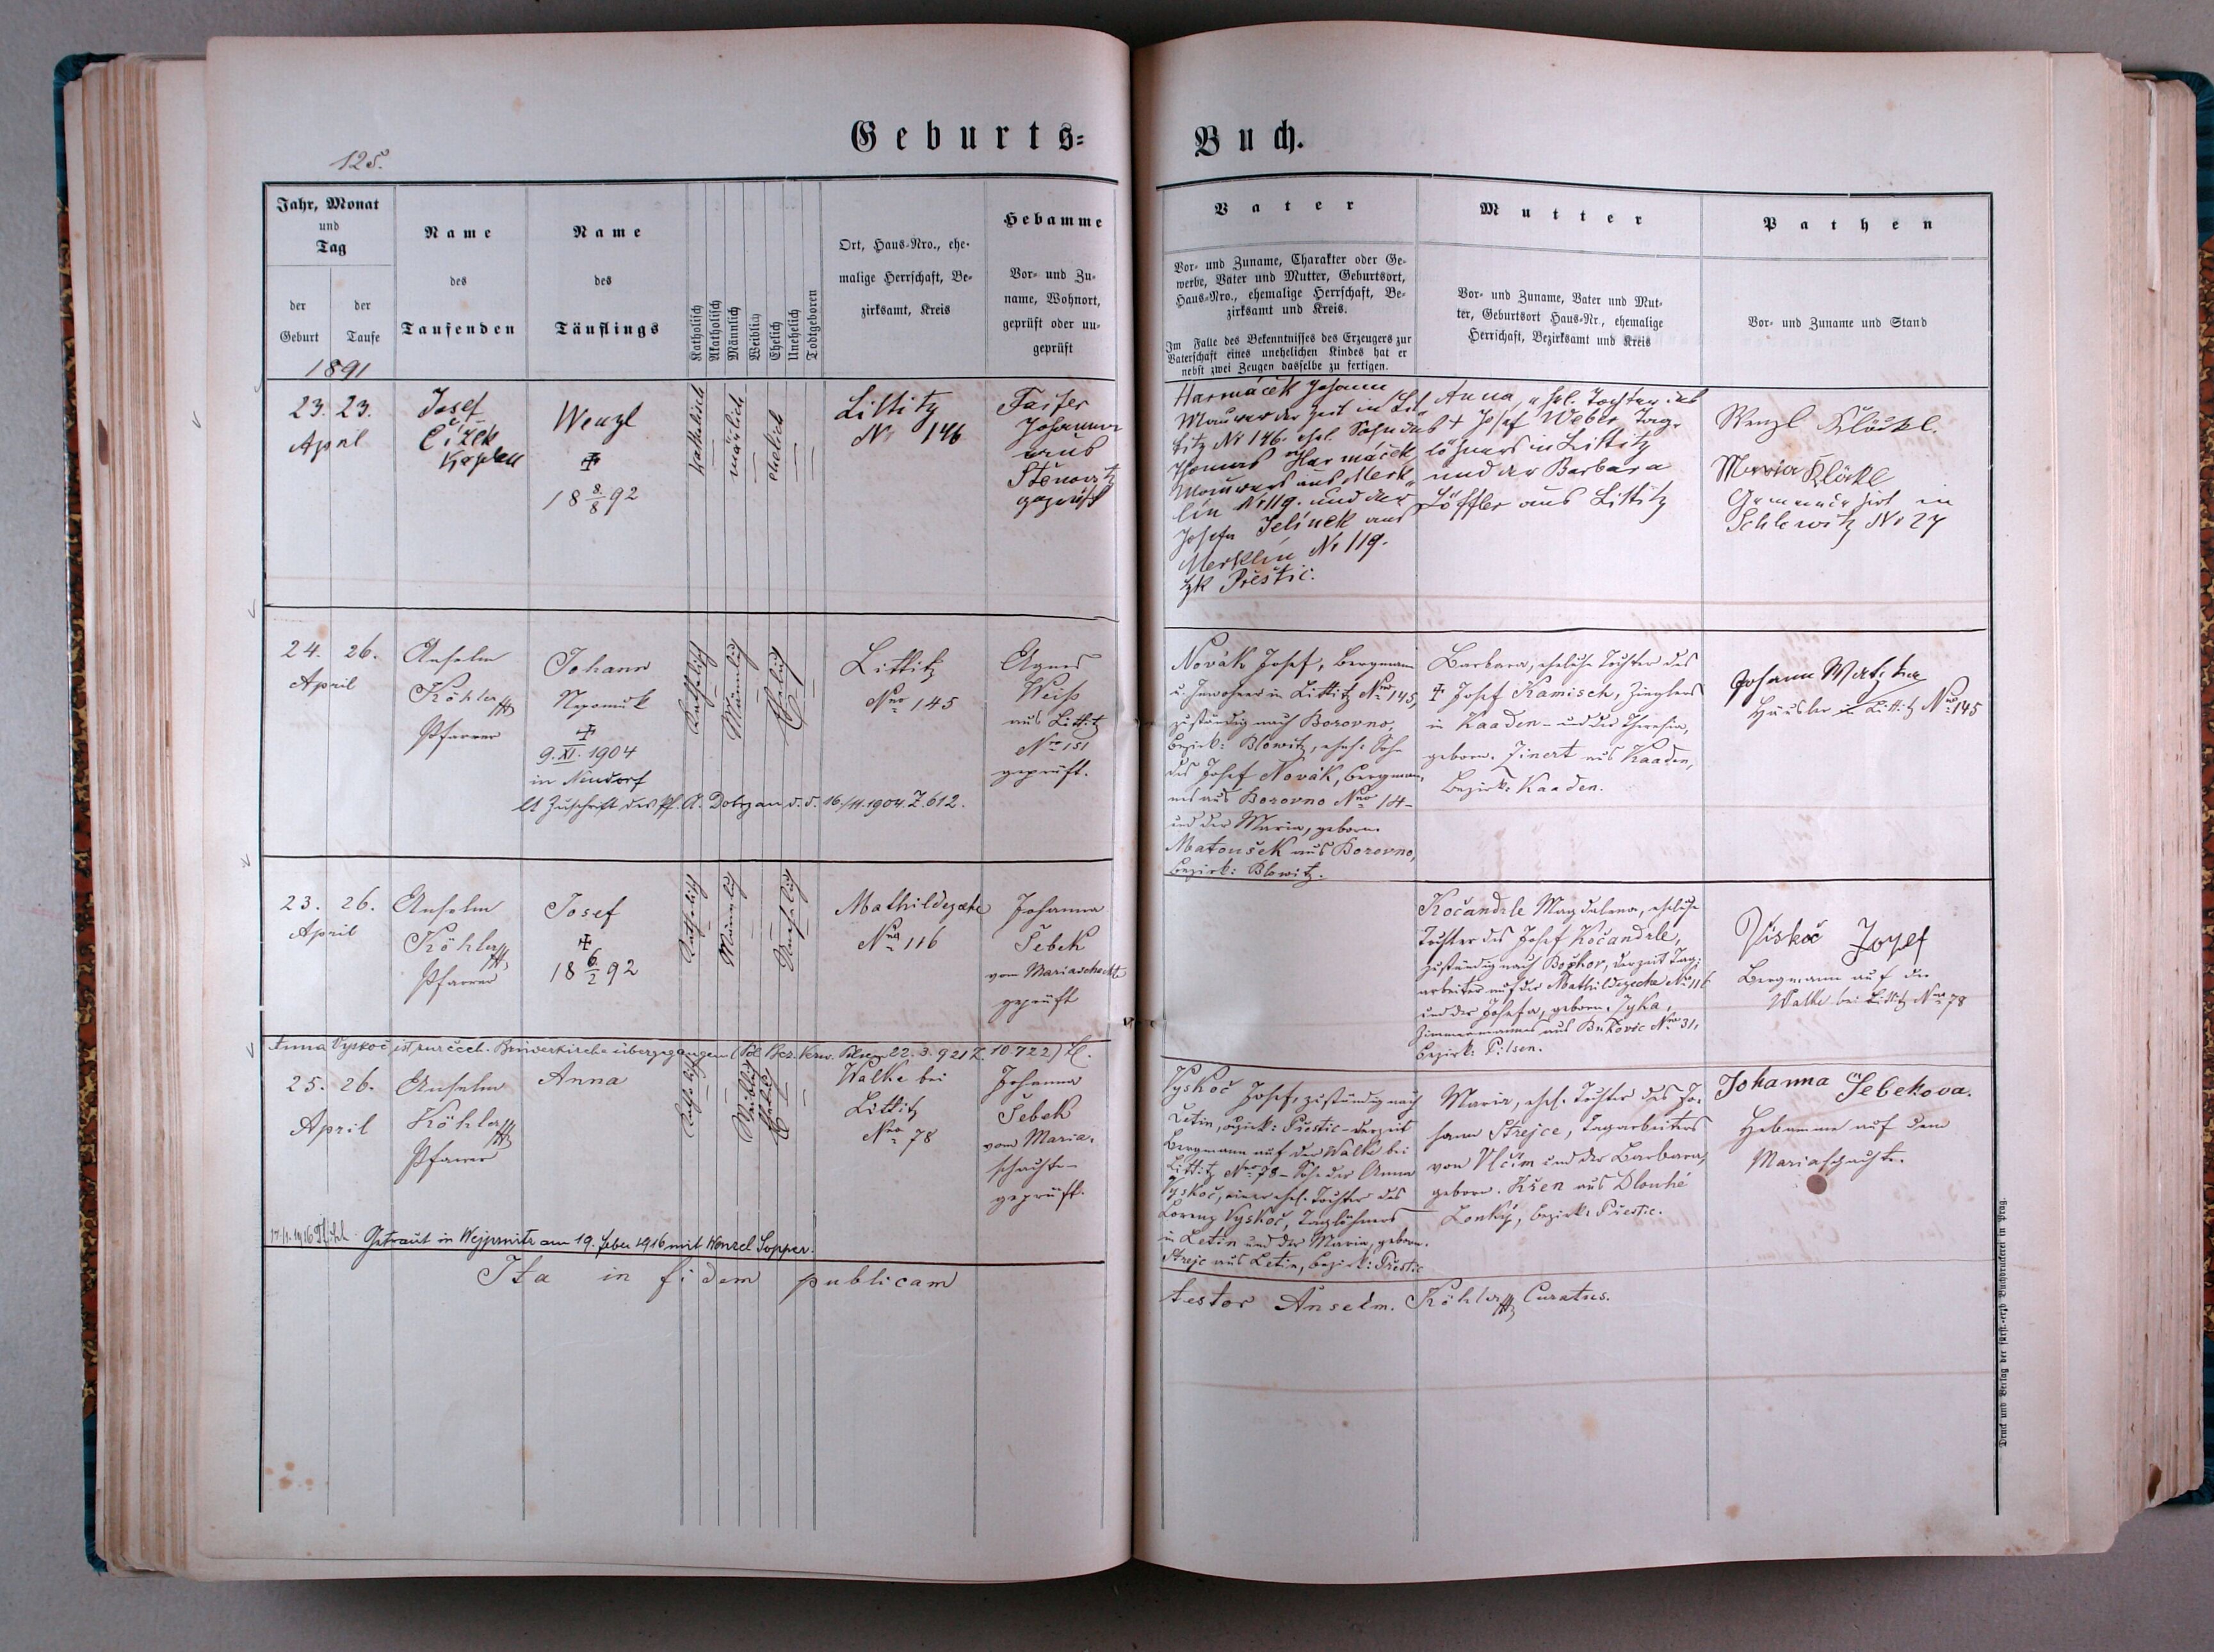 Geburts-
Buch.
125.
Jahr, Monat
und
Tag
der Geburt
der Taufe
Name
des
Taufenden
Name
des
Täuflings
Katholisch
Akatholisch
Männlich
Weiblich
Ehelich
Unehelich
Todtgeboren
Ort, Haus-Nro., ehe-
malige Herrschaft, Be-
zirksamt, Kreis
Hebamme
Vor- und Zu-
name, Wohnort,
geprüft oder un-
geprüft
Vater
Vor- und Zuname, Charakter oder Ge-
werbe, Vater und Mutter, Geburtsort,
Haus-Nro., ehemalige Herrschaft, Be-
zirksamt und Kreis.
Im Falle des Bekenntnisses des Erzeugers zur
Vaterschaft eines unehelichen Kindes hat er
nebst zwei Zeugen dasselbe zu fertigen.
Mutter
Vor- und Zuname, Vater und Mut-
ter, Geburtsort Haus-Nr., ehemalige
Herrschaft, Bezirksamt und Kreis
Pathen
Vor- und Zuname und Stand
1891
23. 23.
April
Josef
Čížek
Kaplan
Wenzl
✠
18 8/8 92
katholisch
mänlich
ehelich
Littitz
No 146
Faifer
Johanna
aus
Stěnowitz
geprüft
Harmáček Johann
Maurer der Zeit in Lit-
titz No 146. ehel. Sohn des
Thomas Harmáček
Maurers aus Merk-
lín No 119. und der
Josefa Jelínek aus
Merklín No 119.
Přestic.
Anna, ehel. Tochter des
+ Josef Weber Tag-
löhners in Littitz
und der Barbara
Löffler aus Littitz
Wenzl Klöckl.
Maria Klöckl
Gemeindehirt in
Schlowitz No 27
24. 26.
April
Anselm
Köhler
Pfarrer
Johann
Nepomuk
✠
9. XI. 1904
in Neudorf
lt Zuschrift des Pf. A. Dobrzan d. d. 16/11.1904. Z. 612.
Katholisch
Männlich
Ehelich
Littitz
Nro 145
Agnes
Weiß
aus Littitz
Nro 151
geprüft.
Novák Josef, Bergmann
u. Inwohner in Littitz Nro 145,
zuständig nach Borovno,
Bezirk: Blowitz, ehel. Sohn
des Josef Novák, Bergman-
nes aus Borovno Nro 14 -
und der Maria, geborn.
Matoušek aus Borovno,
Bezirk: Blowitz.
Barbara, eheliche Tochter des
✠ Josef Kamisch, Zieglers
in Kaaden - und der Theresia,
geborn. Zinert aus Kaaden,
Bezirk: Kaaden.
Johann
Häusler in Littitz Nro 145
23. 26.
April
Anselm
Köhler
Pfarrer
Josef
✠
18 6/2 92
Katholisch
Männlich
Unehelich
Mathildezeche
Nro 116
Johanna
Šebek
vom Mariaschachte
geprüft
Kočandrle Magdalena, eheliche
Tochter des Josef Kočandrle,
zuständig nach Božkov, derzeit Tag-
arbeiter auf der Mathildezeche No 116
und der Josefa, geborn. Zyka,
Zimmermannes aus Bukovic Nro 31,
Bezirk: Pilsen.
Viskoč Jozef
Bergmann auf der
Walke bei Littitz Nro 78
Anna Vyskoč ist zur čech. Brüderkirche übergegangen (Pol. Bez. Verw. Pilsen 22. 3. 921 Z. 10.722)
25. 26.
April
Anselm
Köhler
Pfarrer
Anna
Katholisch
Weiblich
Ehelich
Walke bei
Littitz
Nro 78
Johanna
Šebek
vom Maria-
schachte -
geprüft.
Vyskoč Josef, zuständig nach
Letin, Bezirk: Přestic - derzeit
Bergmann auf der Walke bei
Littitz Nro 78 - Sohn der Anna
Vyskoč, einer ehel. Tochter des
Lorenz Vyskoč, Taglöhners
in Letin und der Maria, geborn.
Strejc aus Letin, Bezirk: Přestic
Maria, ehel. Tochter des Jo-
hann Strejce, Tagarbeiters
von Vlčim und der Barbara,
geborn. Křen aus Dlouhé
Lonký, Bezirk: Přestic.
Johanna Šebekova.
Hebamme auf dem
Mariaschachte.
Getraut in Wejprnitz am 19. Feber 1916 mit Wenzel Sopper.
Ita in fidem publicam
testor Anselm. Köhler Curatus.
Druck und Verlag der fürst.-erzb. Buchdruckerei in Prag.